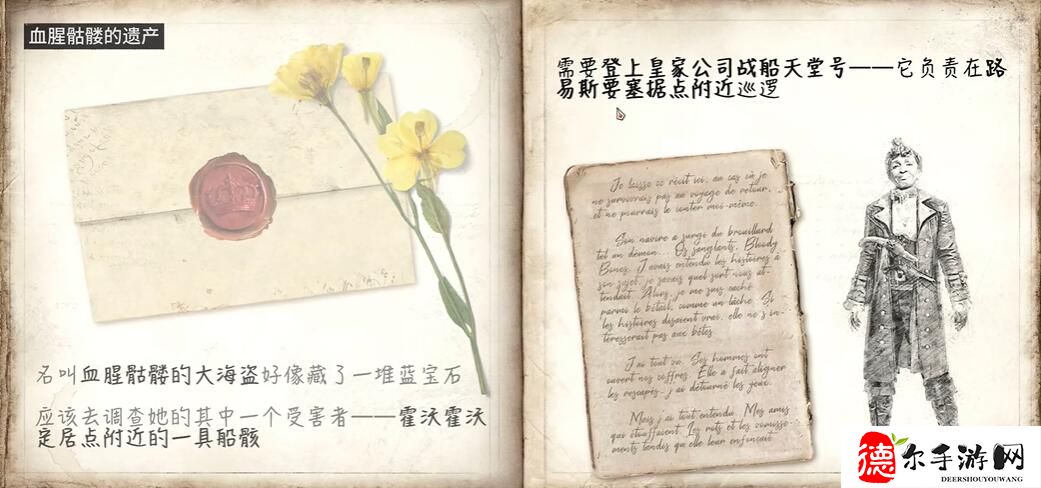 血腥骷髅的遗产
名叫血腥骷髅的大海盗好像藏了一堆蓝宝石
应该去调查她的其中一个受害者——霍沃霍沃
定居点附近的一具船骸
需要登上皇家公司战船天堂号——它负责在路
易斯要塞据点附近巡逻
Je laisse ce récit ici, au cas où je
ne survivrais pas au voyage de retour,
et ne pourrais le conter moi-même.
Son navire a surgi du brouillard
tel un démon... Os sanglants, Bloody
Bones. J'avais entendu les histoires à
son sujet, je savais quel sort nous at-
tendait. Alors, je me suis caché
parmi le bétail, comme un lâche. Si
les histoires disaient vrai, elle ne s'in-
téresserait pas aux bêtes.
J'ai tout vu. Ses hommes ont
ouvert nos coffres. Elle a fait aligner
les rescapés, j'ai détourné les yeux.
Mais j'ai tout entendu. Mes amis
qui étouffaient. Les rots et les vomisse-
ments tandis qu'elle leur enfonçait
德尔手游网
DEERSHOUYOUWANG